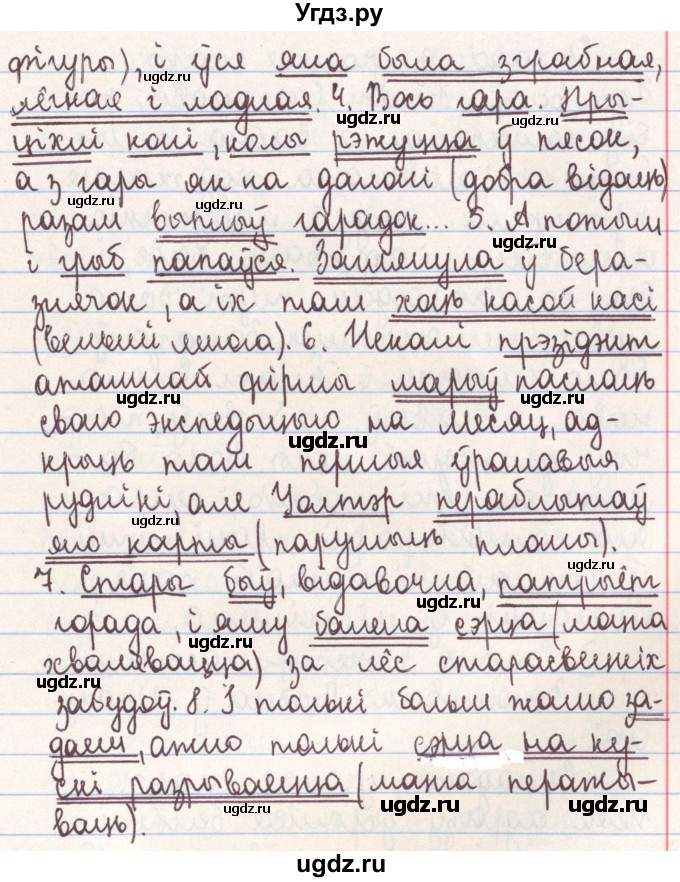 Угдз.ру
фігуры), і ўся яна была зграбная,
лёгкая і ладная. 4. Вось гара. Пры-
ціхлі коні, колы рэжуцца ў пясок,
а з гары як на далоні (добра відаць)
разам выплыў гарадок... 5. А потым
і грыб папаўся. Заглянула ў бера-
знячок, а іх там хоць касой касі
(вельмі многа). 6. Некалі прэзідэнт
атамнай фірмы марыў паслаць
сваю экспедыцыю на Месяц, ад-
крыць там першыя ўранавыя
руднікі, але Уолтэр пераблытаў
яго карты (парушыць планы).
7. Стары быў, відавочна, патрыёт
горада, і яму балела сэрца (мата
хвалявацца) за лёс старасвецкіх
забудоў. 8. І толькі больш жалю за-
даем, ажно толькі сэрца на ку-
скі разрываецца (мата перажы-
ваць).
ugdz.ru